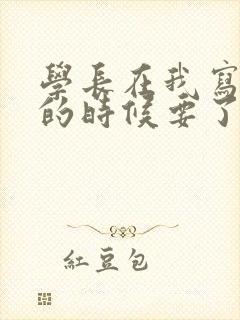 學長在我寫
的時候要了
紅豆包